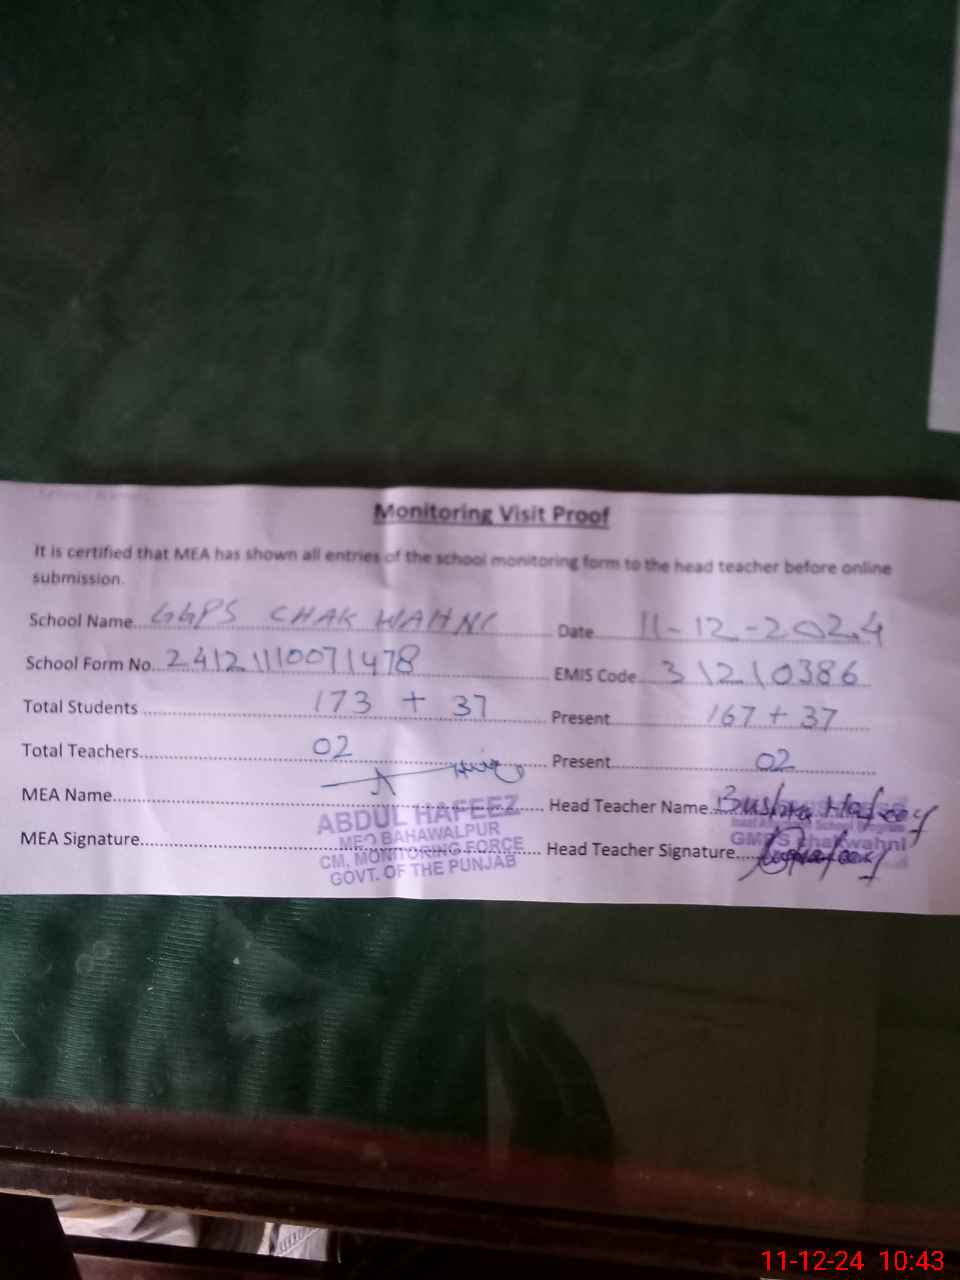 Monitoring Visit Proof
It is certified that MEA has shown all entries of the school monitoring form to the head teacher before online
submission.
School Name GGPS CHAK WAHNI Date 11-12-2024
School Form No. 24121110071478 EMIS Code 31210386
Total Students 173 + 37 Present 167 + 37
Total Teachers 02 Present 02
MEA Name Head Teacher Name Bushra Hafeez
ABDUL HAFEEZ
MEA Signature Head Teacher Signature
MEO BAHAWALPUR
CM, MONITORING FORCE
GOVT. OF THE PUNJAB
GMPS Chakwahni
11-12-24 10:43